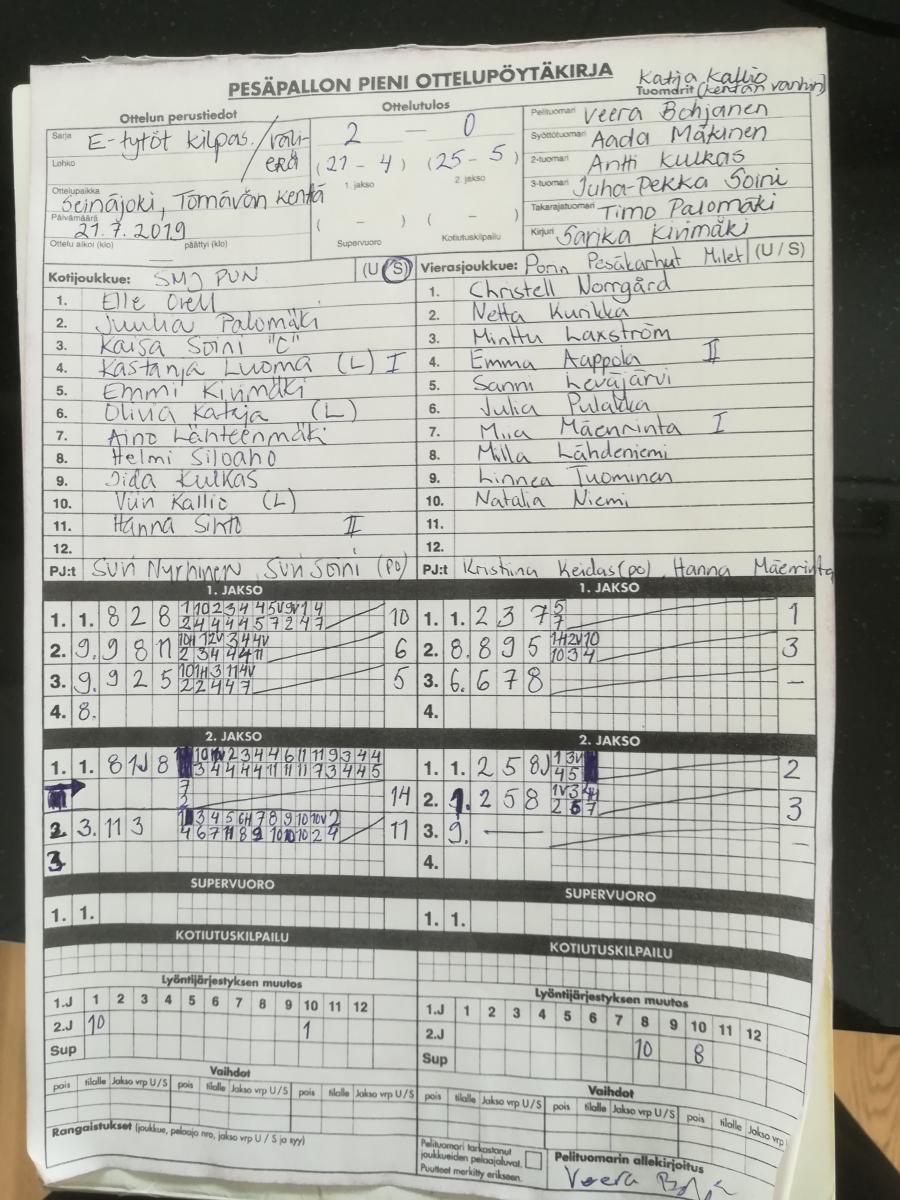 PESÄPALLON PIENI OTTELUPÖYTÄKIRJA
Katja Kallio
Tuomarit (kentän vanhin)
Ottelun perustiedot
Sarja E-tytöt kilpas. / väli-
Lohko erä
Ottelupaikka
Seinäjoki, Törnävän kenttä
Päivämäärä
21.7.2019
Ottelu alkoi (klo) päättyi (klo)
Ottelutulos
2 — 0
(21 - 4) (25 - 5)
1. jakso 2. jakso
( - ) ( - )
Supervuoro Kotiutuskilpailu
Pelituomari Veera Bohjanen
Syöttötuomari Aada Mäkinen
2-tuomari Antti Kulkas
3-tuomari Juha-Pekka Soini
Takarajatuomari Timo Palomäki
Kirjuri Sarika Kirimäki
Kotijoukkue: SMJ PUN (U / S)
1. Elle Orell
2. Juulia Palomäki
3. Kaisa Soini "C"
4. Kastanja Luoma (L) I
5. Emmi Kirimäki
6. Olivia Kataja (L)
7. Aino Lähteenmäki
8. Helmi Siloaho
9. Iida Kulkas
10. Viivi Kallio (L)
11. Hanna Sihto II
12.
PJ:t Suvi Nyrhinen, Suvi Soini (PO)
Vierasjoukkue: Porin Pesäkarhut Milet (U / S)
1. Christell Norrgård
2. Netta Kurikka
3. Minttu Laxström
4. Emma Aappola II
5. Sanni Leväjärvi
6. Julia Pulakka
7. Miia Mäenrinta I
8. Milla Lähdeniemi
9. Linnea Tuominen
10. Natalia Niemi
11.
12.
PJ:t Kristiina Keidas (po), Hanna Mäenrinta
1. JAKSO
1. 1. 8 2 8 10
2. 9. 9 8 11 6
3. 9. 9 2 5 5
4. 8.
1. JAKSO
1. 1. 2 3 7 5 7 1
2. 8. 8 9 5 3
3. 6. 6 7 8 –
4.
2. JAKSO
1. 1. 8
14
2. 3. 11 3 11
3
2. JAKSO
1. 1. 2 5 8 2
2. 1. 2 5 8 3
3. 9. — –
4.
SUPERVUORO
1. 1.
SUPERVUORO
1. 1.
KOTIUTUSKILPAILU
KOTIUTUSKILPAILU
Lyöntijärjestyksen muutos
1.J 1 2 3 4 5 6 7 8 9 10 11 12
2.J 10 1
Sup
Lyöntijärjestyksen muutos
1.J 1 2 3 4 5 6 7 8 9 10 11 12
2.J 10 8
Sup
Vaihdot
pois tilalle Jakso vrp U / S pois tilalle Jakso vrp U / S pois tilalle Jakso vrp U / S
Vaihdot
pois tilalle Jakso vrp U / S pois tilalle Jakso vrp U / S pois tilalle Jakso vrp U
Rangaistukset (joukkue, pelaaja nro, jakso vrp U / S ja syy)
Pelituomari tarkastanut
joukkueiden pelaajaluvat.
Puutteet merkitty erikseen.
Pelituomarin allekirjoitus
Veera